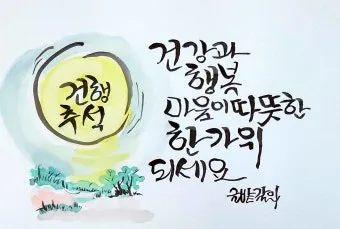 건행
추석
건강과
행복
마음이따뜻한
한가위
되세요